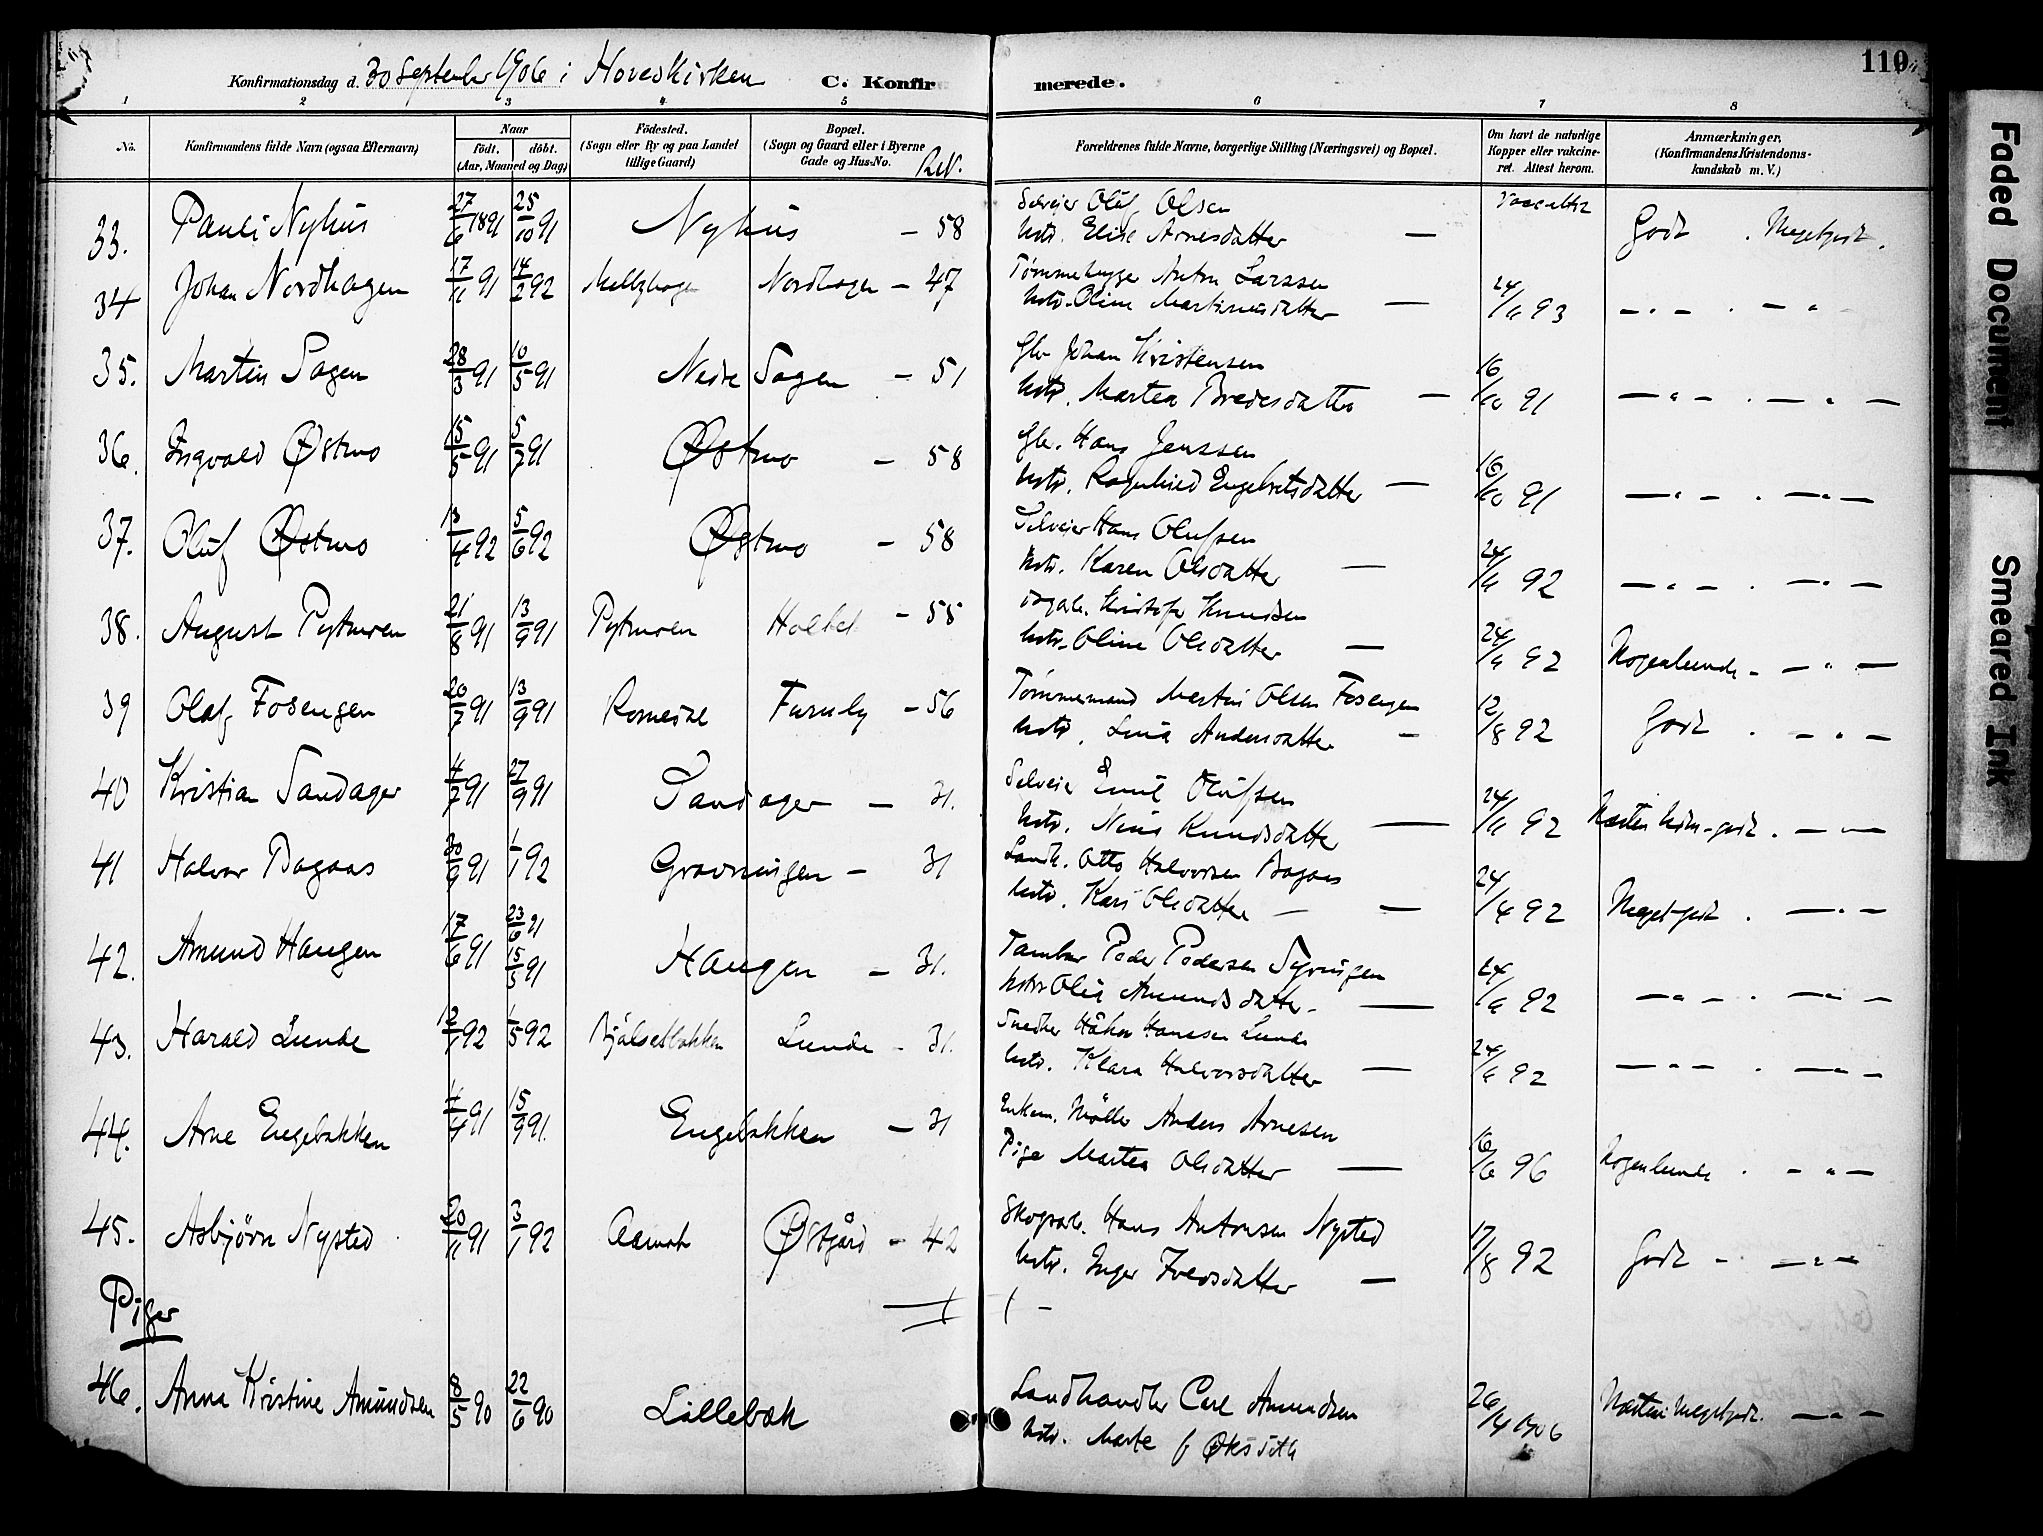 110
Konfirmationsdag d. 30 September 1906 i Hovedkirken C. Konfirmerede.
1 2 3 4 5 6 7 8
No. Konfirmandens fulde Navn (ogsaa Efternavn) Naar født. døbt. (Aar, Maaned og Dag) Fødested. (Sogn eller By og paa Landet tillige Gaard) Bopæl. (Sogn og Gaard eller i Byerne Gade og Hus-No. Forældrenes fulde Navne, borgerlige Stilling (Næringsvei) og Bopæl. Om havt de naturlige Kopper eller vakcineret. Attest herom. Anmærkninger. (Konfirmandens Kristendomskundskab m. V.)
33. Pauli Nyhus 27/6 1891 25/10 91 Nyhus - 58 Selveier Oluf Olsen
Hstr. Elise Arnesdatter — Godt . Megetgodt.
34 Johan Nordhagen 17/11 91 14/2 92 Nordhagen - 47 Tømmerhugger Anton Larssen
Hstr. Oline Martinusdatter — 24/6 93 — " — . — " —
35. Martin Sagen 28/3 91 10/5 91 Nedre Sagen - 51 Gbr Johan Kristensen
Hstr. Martea Bredesdatter — 16/10 91 — " — . — " —
36. Ingvald Østmo 15/5 91 5/7 91 Østmo - 58 Gbr. Hans Jenssen
Hstr. Ragnhild Engebretsdatter — 16/10 91 — " — . — " —
37. Oluf Østmo 13/4 92 5/6 92 Østmo - 58 Selveier Hans Olufsen
Hstr. Karen Olsdatter — 24/6 92 — " — . — " —
38. August Pytmoen 21/8 91 13/9 91 Pytmoen - 55 Kristofer Knudsen
Hstr. Oline Olsdatter — 24/6 92 Nogenlunde - — " —
39 Olaf Fosengen 20/7 91 13/9 91 Romedal Furuly - 56 Tømmermand Martin Olsen Fosengen
Hstr. Lina Andersdatter - 12/8 92 Godt . — " —
40 Kristian Sandager 4/7 91 27/9 91 Sandager - 31. Selveier Emil Olufsen
Hstr. Nina Knudsdatter — 24/6 92
41 Halvor Bagaas 30/9 91 1/1 92 Gravningen - 31 Landh. Otto Halvorsen Bagaas
Hstr. Kari Olsdatter — — 24/4 92 Megetgodt . — " —
42. Amund Haugen 17/6 91 23/6 91
15/5 91 Haugen - 31. Tambur Peder Pedersen
Hstr Olia Amundsdatter — 24/6 92 — " — . — " —
43. Harald Lunde 12/1 92 1/5 92 Lunde - 31. Snedker Håkon Hanssen Lunde
Hstr. Klara Halvorsdatter — 24/6 92 — " — . — " —
44. Arne Engebakken 4/4 91 15/9 91. Engebakken - 31 Enkem. Møller Anders Arnesen
Pige Martea Olsdatter — 16/6 96 Nogenlunde . — " —
45. Asbjørn Nysted 20/11 91 3/1 92 Aamot Østgård - 42 Skogsarb. Hans Antonsen Nysted
Hstr. Inger Iversdatter — 17/8 92 Godt - — " —
Piger
46. Anna Kristine Amundsen 8/5 90 22/6 90 Lillebæk Landhandler Carl Amundsen
Hstr. Marte f 26/4 1906 Næsten Megetgodt. — " —
Faded Document
Smeared Ink